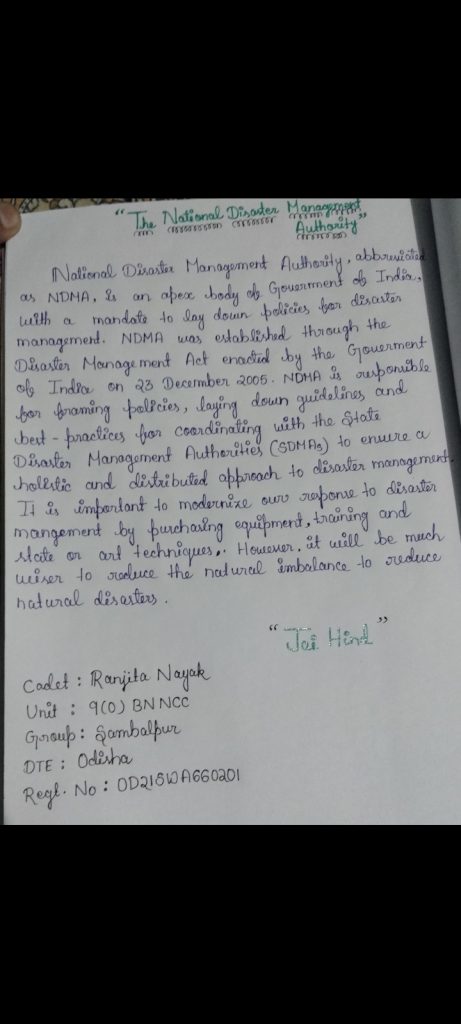 "The National Disaster Management
Authority"
National Disaster Management Authority, abbreviated
as NDMA, is an apex body of Gouerment of India,
with a mandate to lay down policies for disaster
management. NDMA was established through the
Disaster Management Act enacted by the Gouerment
of India on 23 December 2005. NDMA is responsible
for framing policies, laying down guidelines and
best - practices for coordinating with the State
Disaster Management Authorities (SDMAs) to ensure a
holistic and distributed approach to disaster management.
It is important to modernize our response to disaster
mangement by purchasing equipment, training and
state or art techniques,. However, it will be much
wiser to reduce the natural imbalance to reduce
natural disasters.
"Jai Hind"
Cadet : Ranjita Nayak
Unit : 9(O) BN NCC
Group : Sambalpur
DTE : Odisha
Regl. No : OD21SWA660201